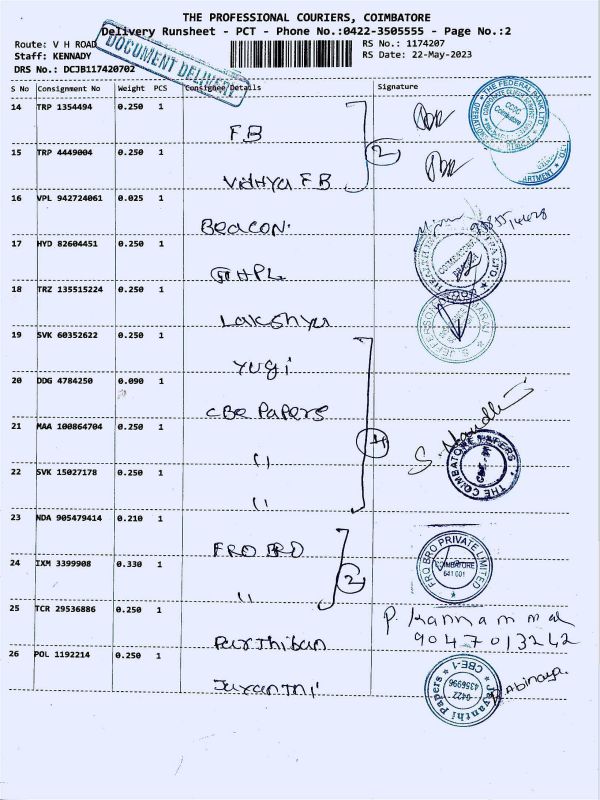 THE PROFESSIONAL COURIERS, COIMBATORE
Delivery Runsheet - PCT - Phone No.:0422-3505555 - Page No.:2
Route: V H ROAD
RS No.: 1174207
Staff: KENNADY
RS Date: 22-May-2023
DRS No.: DCJB117420702
DOCUMENT DELIVERY
S No Consignment No Weight PCS Consignee Details Signature
14 TRP 1354494 0.250 1
FB
15 TRP 4449004 0.250 1
Vidhya FB
2
16 VPL 942724061 0.025 1
Beacon.
17 HYD 82604451 0.250 1
18 TRZ 135515224 0.250 1
Lakshya
19 SVK 60352622 0.250 1
Yugi
20 DDG 4784250 0.090 1
CBE Papers
21 MAA 100864704 0.250 1
"
4
22 SVK 15027178 0.250 1
"
THE COIMBATORE PAPERS
23 NDA 905479414 0.210 1
FRO BRO
24 IXM 3399908 0.330 1
"
2
FRO BRO PRIVATE LIMITED
COIMBATORE
641 001
25 TCR 29536886 0.250 1
Parthiban
P. Kannammal
9047013242
26 POL 1192214 0.250 1
Jayanthi
Jayanthi Papers
CBE-1
0422
4356996
Abinaya.
THE FEDERAL BANK LTD.